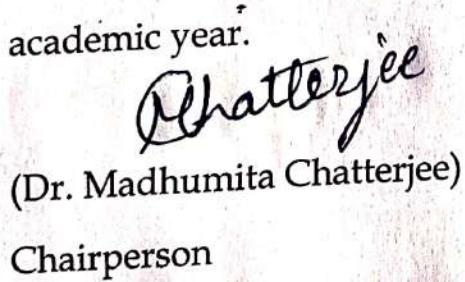 academic year.
MChatterjee
(Dr. Madhumita Chatterjee)
Chairperson